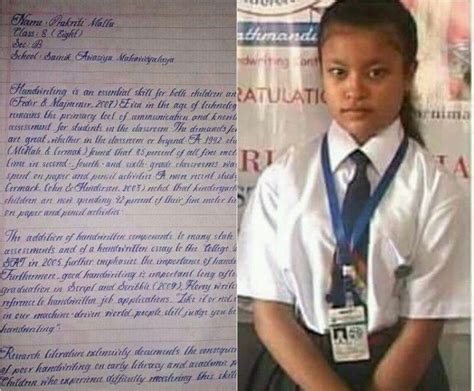 Name: Prakriti Malla
Class: 8 (Eight)
Sec: B
School: Sainik Awasiya Mahavidyalaya
Handwriting is an essential skill for both children and
(Feder & Majnemer, 2007) Even in the age of technology
remains the primary tool of communication and knowle
assessment for students in the classroom. The demands for
are great, whether in the classroom or beyond. A 1992 stud
(McHale & Cermak) found that 85 percent of all fine moto
time in second- fourth- and sixth-grade classrooms was
spent on paper and pencil activities. A more recent study
Cermark, Cohn & Henderson, 2003) noted that kindergart
children are now spending 42 percent of their fine motor tim
on paper and pencil activities.
The addition of handwritten components to many state
assessments and of a handwritten essay to the College
SAT in 2005 further emphasis the importance of hand
Furthermore, good handwriting is important long after
graduation. In Script and Scribble (2009), Florey writes
reference to handwritten job applications. "Like it or not,
in our machine-driven world, people still judge you by
handwriting."
Research literature extensively documents the consequenc
of poor handwriting on early literacy and academic pe
Children who experience difficulty mastering this skill
athmandu
ndwriting Cont
RATULATI
urnima